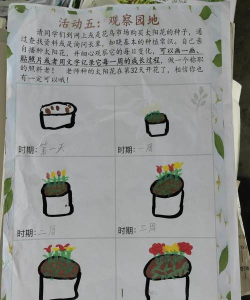 活动五：观察园地
请同学们到网上或是花鸟市场购买太阳花的种子，通
过查找资料或是询问长辈，知晓基本的种植常识。自己亲
自播种太阳花，并细心观察它的每日变化，可以画一画、
贴照片或者用文字记录它每一周的成长过程，做一个称职
的照料者！老师种的太阳花在第32天开花了，相信你也
有一定可以哦！
时期：第一天
时期：一月
时期：二月
时期：三月